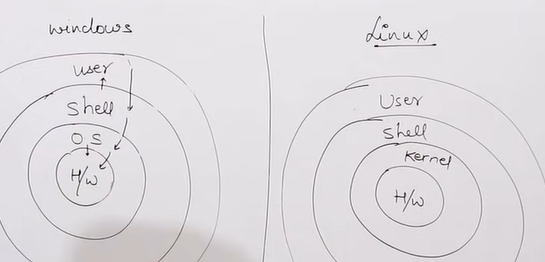 windows
user
Shell
O.S
H/W
Linux
User
Shell
Kernel
H/W